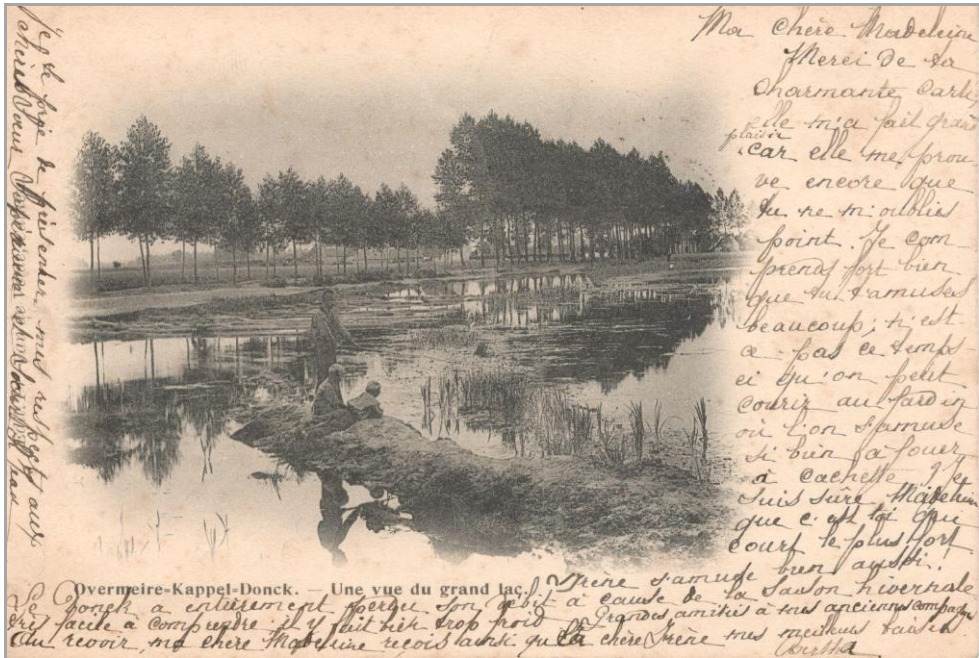 Ma chère Madeleine
Merci de ta
charmante carte
elle m'a fait grand
plaisir
car elle me prou
ve encore que
tu ne m'oublies
point. Je com
prends fort bien
que tu t'amuses
beaucoup; n'est
ce pas ce temps
ci qu'on peut
courir au jardin
où l'on s'amuse
si bien à jouer
à cachette? Je
suis sûre Madeleine
que c'est toi qui
court le plus fort
Irène s'amuse bien aussi!
Overmeire-Kappel-Donck. — Une vue du grand lac.
Le Donck a entièrement perdu son débit à cause de la saison hivernale
très facile à comprendre il y fait trop froid. Grandes amitiés à mes anciennes compagnes
Au revoir, ma chère Madeleine reçois ainsi que chère Irène mes meilleurs baisers
Bertha
de présenter mes respects aux
chères Sœurs